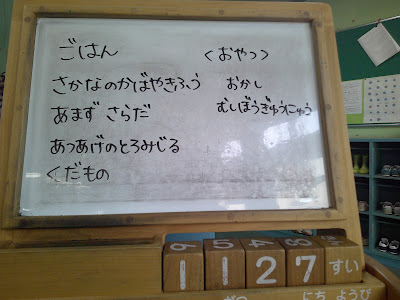 ごはん
さかなのかばやきふう
あまず さらだ
あつあげのとろみじる
くだもの
<おやつ>
おかし
むしぼうぎゅうにゅう
1 1 2 7 すい
にち ようび